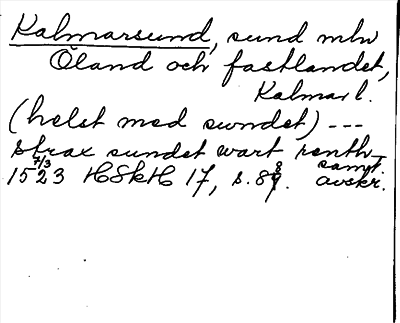 Kalmarsund, sund mlu
Öland och fastlandet,
Kalmar l.
(helst med swndet) ---
strax sundet wart renth_
1523 7/3 HSkH 17, s. 89. samt. avskr.